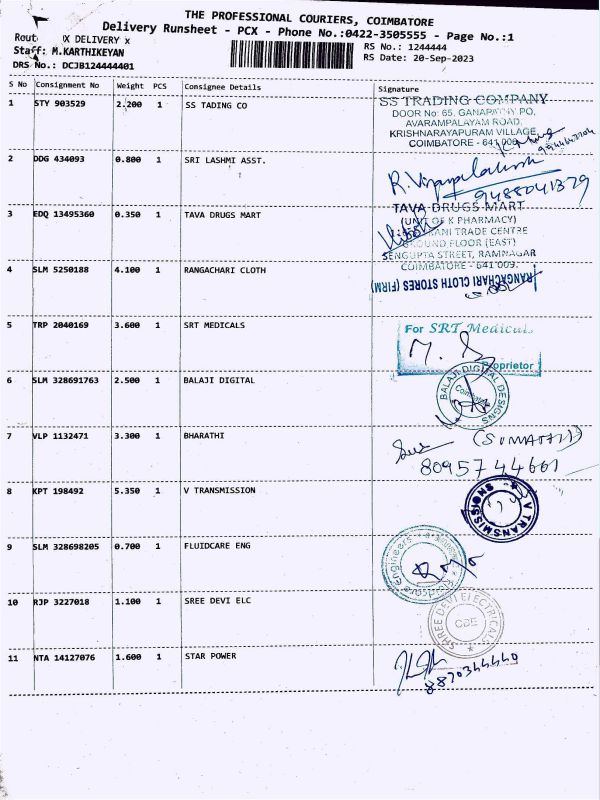 THE PROFESSIONAL COURIERS, COIMBATORE
Delivery Runsheet - PCX - Phone No.:0422-3505555 - Page No.:1
Rout X DELIVERY x
RS No.: 1244444
Staff: M.KARTHIKEYAN
RS Date: 20-Sep-2023
DRS No.: DCJB124444401
S No Consignment No Weight PCS Consignee Details Signature
1 STY 903529 2.200 1 SS TADING CO
SS TRADING COMPANY
DOOR No: 65, GANAPATHY PO,
AVARAMPALAYAM ROAD,
KRISHNARAYAPURAM VILLAGE,
COIMBATORE - 641 006
2 DDG 434093 0.800 1 SRI LASHMI ASST.
9488041379
3 EDQ 13495360 0.350 1 TAVA DRUGS MART
TAVA DRUGS MART
(UNIT OF K PHARMACY)
RANI TRADE CENTRE
GROUND FLOOR (EAST)
SENGUPTA STREET, RAMNAGAR
COIMBATORE - 641 009.
4 SLM 5250188 4.100 1 RANGACHARI CLOTH
RANGACHARI CLOTH STORES (FIRM)
5 TRP 2040169 3.600 1 SRT MEDICALS
For SRT Medicals
Proprietor
6 SLM 328691763 2.500 1 BALAJI DIGITAL
BALAJI DIGITAL DESIGNS
Coimbatore
7 VLP 1132471 3.300 1 BHARATHI
8095744661
8 KPT 198492 5.350 1 V TRANSMISSION
V TRANSMISSIONS
9 SLM 328698205 0.700 1 FLUIDCARE ENG
Engineers
10 RJP 3227018 1.100 1 SREE DEVI ELC
SHREE DEVI ELECTRICALS
CBE
11 NTA 14127076 1.600 1 STAR POWER
8870344440